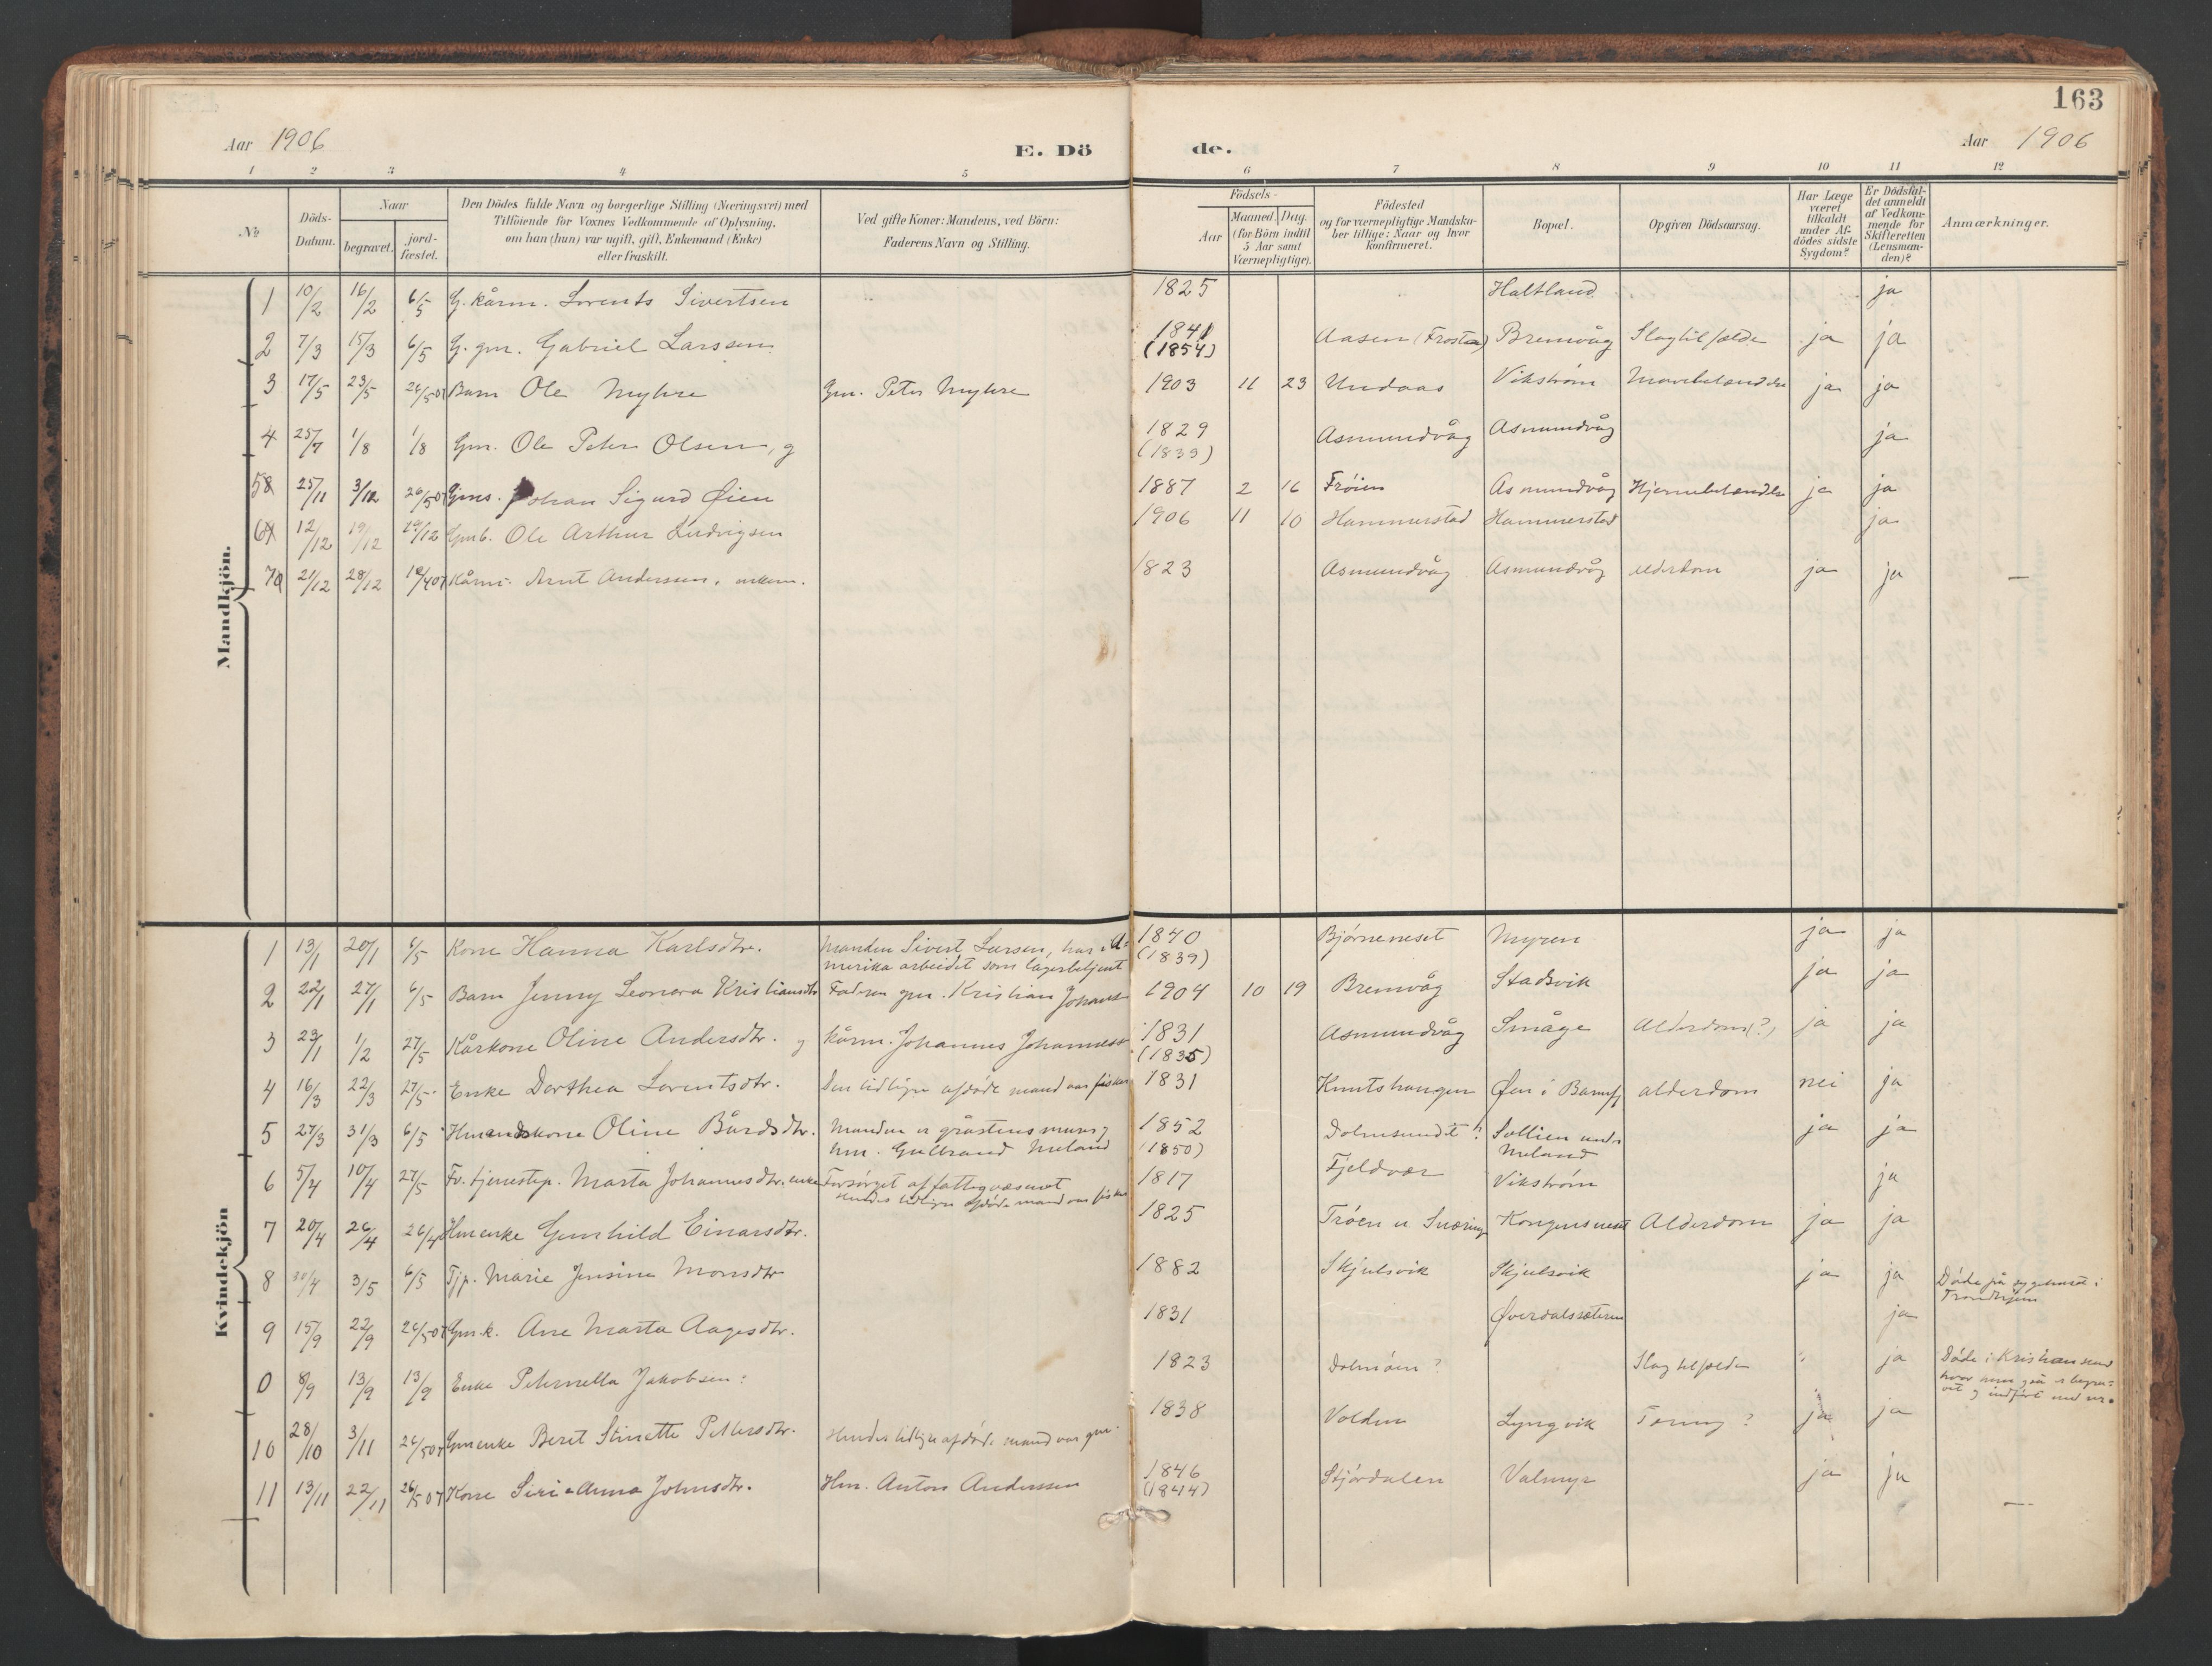 163
Aar 1906
E. Döde.
Aar 1906
1 2 3 4 5 6 7 8 9 10 11 12
No
Döds-Datum.
Naar
begravet.
jord-fæstet.
Den Dödes fulde Navn og borgerlige Stilling (Næringsvei) med
Tilföiende for Voxnes Vedkommende af Oplysning,
om han (hun) var ugift, gift, Enkemand (Enke)
eller fraskilt.
Ved gifte Koner: Mandens, ved Börn:
Faderens Navn og Stilling.
Födsels-
Aar
Maaned. Dag.
(for Börn indtil
5 Aar samt
Værnepligtige).
Födested
og for værnepligtige Mandska-
ber tillige: Naar og hvor
konfirmeret.
Bopæl.
Opgiven Dödsaarsag.
Har Læge
været
tilkaldt
under Af-
dödes sidste
Sygdom?
Er Dödsfal-
det anmeldt
af Vedkom-
mende for
Skifteretten
(Lensman-
den)?
Anmærkninger.
Mandkjön.
1 10/2 16/2 6/5 G. kårm. Lorents Sivertsen 1825 Haltland ja
2 7/3 15/3 6/5 G. gm. Gabriel Larssen 1841 (1854) Aasen (Frosta) Bremvåg Slagtilfælde ja ja
3 17/5 23/5 Barn Ole Myhre Gm. Peter Myhre 1903 11 23 Undaas Vikstrøm ja ja
4 25/7 1/8 1/8 Gm. Ole Peter Olsen, g 1829 (1839) Asmundvåg Asmundvåg ja
5 25/11 3/12 26/5 07 Gms. Johan Sigurd Øien 1887 2 16 Frøien Asmundvåg Hjernebetændelse ja ja
6 12/12 19/12 19/12 Gmb. Ole Arthur Ludvigsen 1906 11 10 Hammerstad Hammerstad ja
7 21/12 28/12 Kårm. Arnt Anderssen, enkem. 1823 Asmundvåg Asmundvåg Alderdom ja ja —
Kvindekjön
1 13/1 20/1 6/5 Kone Hanna Karlsdtr. Manden Sivert Larsen, har i A-
merika arbeidet som lagerbetjent 1840 (1839) Bjørneneset Myren ja ja
2 22/1 27/1 6/5 Barn Jenny Leonora Kristiansdtr Faderen gm. Kristian Johans 1904 10 19 Bremvåg Stadsvik ja ja
3 23/1 1/2 27/5 Kårkone Oline Andersdtr. g kårm. Johannes Johannessen 1831 (1835) Asmundvåg Småge Alderdom (?) ja ja
4 16/3 22/3 27/5 Enke Dorthea Lorentsdtr. Den tidligere afdøde mand var fisker 1831 Knutshaugen Øen i Barmfj alderdom nei ja
5 27/3 31/3 6/5 Hmandskone Oline Bårdsdtr. Manden er gråstensmurer,
hm. Gulbrand Meland 1852 (1850) Dolmsundet? Sollien under
Meland ja ja
6 5/4 10/4 27/5 Fr. tjenestep. Marta Johannesdtr. enke Forsørget af fattigvæsenet
Hendes tidligere afdøde mand var fisker 1817 Fjeldvær Vikstrøm ja
7 20/4 26/4 26/4 Hmenke Gunhild Einarsdtr. 1825 Trøen Kongensvold Alderdom ja ja
8 30/4 3/5 6/5 Tjp. Marie Jensine Monsdtr 1882 Skjulsvik Skjulsvik ja ja Døde på sygehuset i
Trondhjem
9 15/9 22/9 26/5 07 Gm.k. Ane Marta Aagesdtr. 1831 Øverdalssæteren ja
0 8/9 13/9 13/9 Enke Peternella Jakobsen: 1823 Dolmøen? Slagtilfælde ja Døde i Kristiansund
hvor hun også er begra-
vet og indført med nr.
10 28/10 3/11 26/5 07 Gmenke Beret Stinette Pettersdtr. Hendes tidligere afdøde mand var gm. 1838 Volden Lyngvik Tæring? ja ja
11 13/11 22/11 26/5 07 Kone Siri-Anna Johnsdtr. Hm. Anton Anderssen 1846 (1844) Stjørdalen Valmyr ja ja —